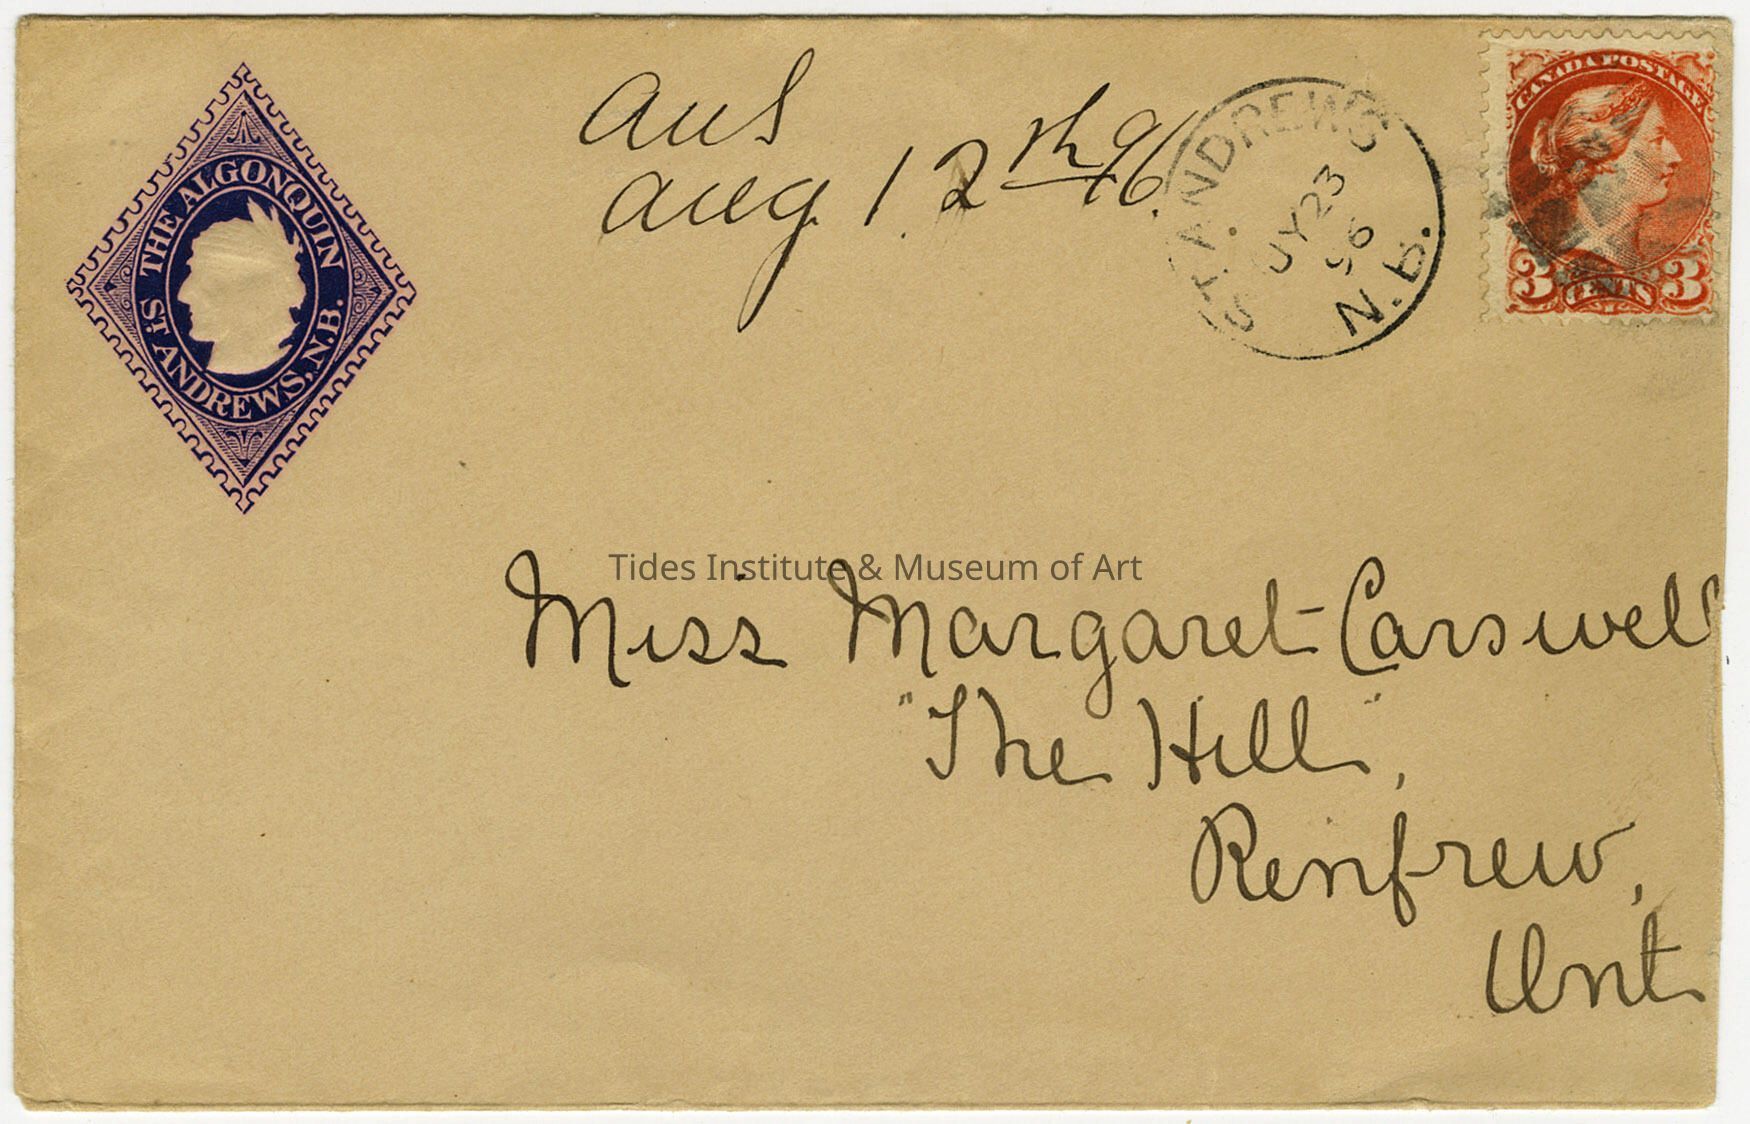 THE ALGONQUIN
ST. ANDREWS, N.B.
ans
aug. 12th 96.
ST. ANDREWS
JY 23
96
N.B.
CANADA POSTAGE
3 CENTS 3
Tides Institute & Museum of Art
Miss Margaret Carswell
"The Hill",
Renfrew,
Ont